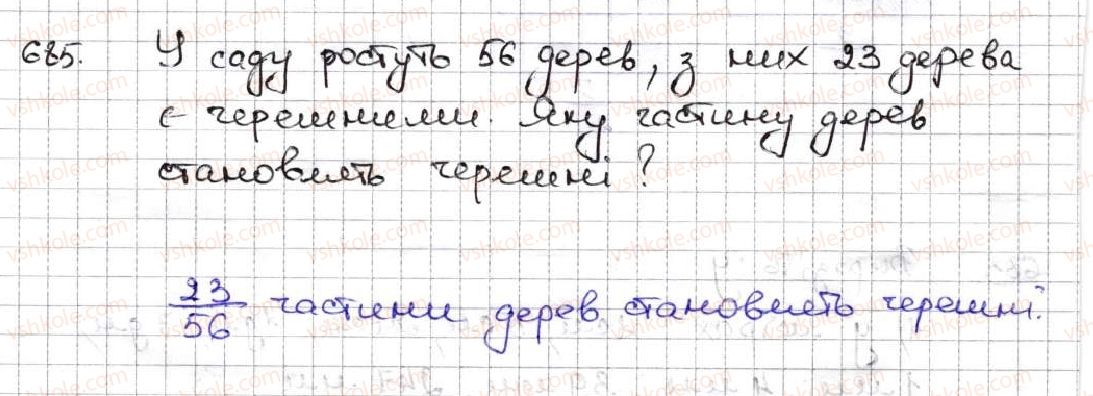 685. У саду ростуть 56 дерев, з них 23 дерева
є черешнями. Яку частину дерев
становлять черешні?
23/56 частини дерев становлять черешні.